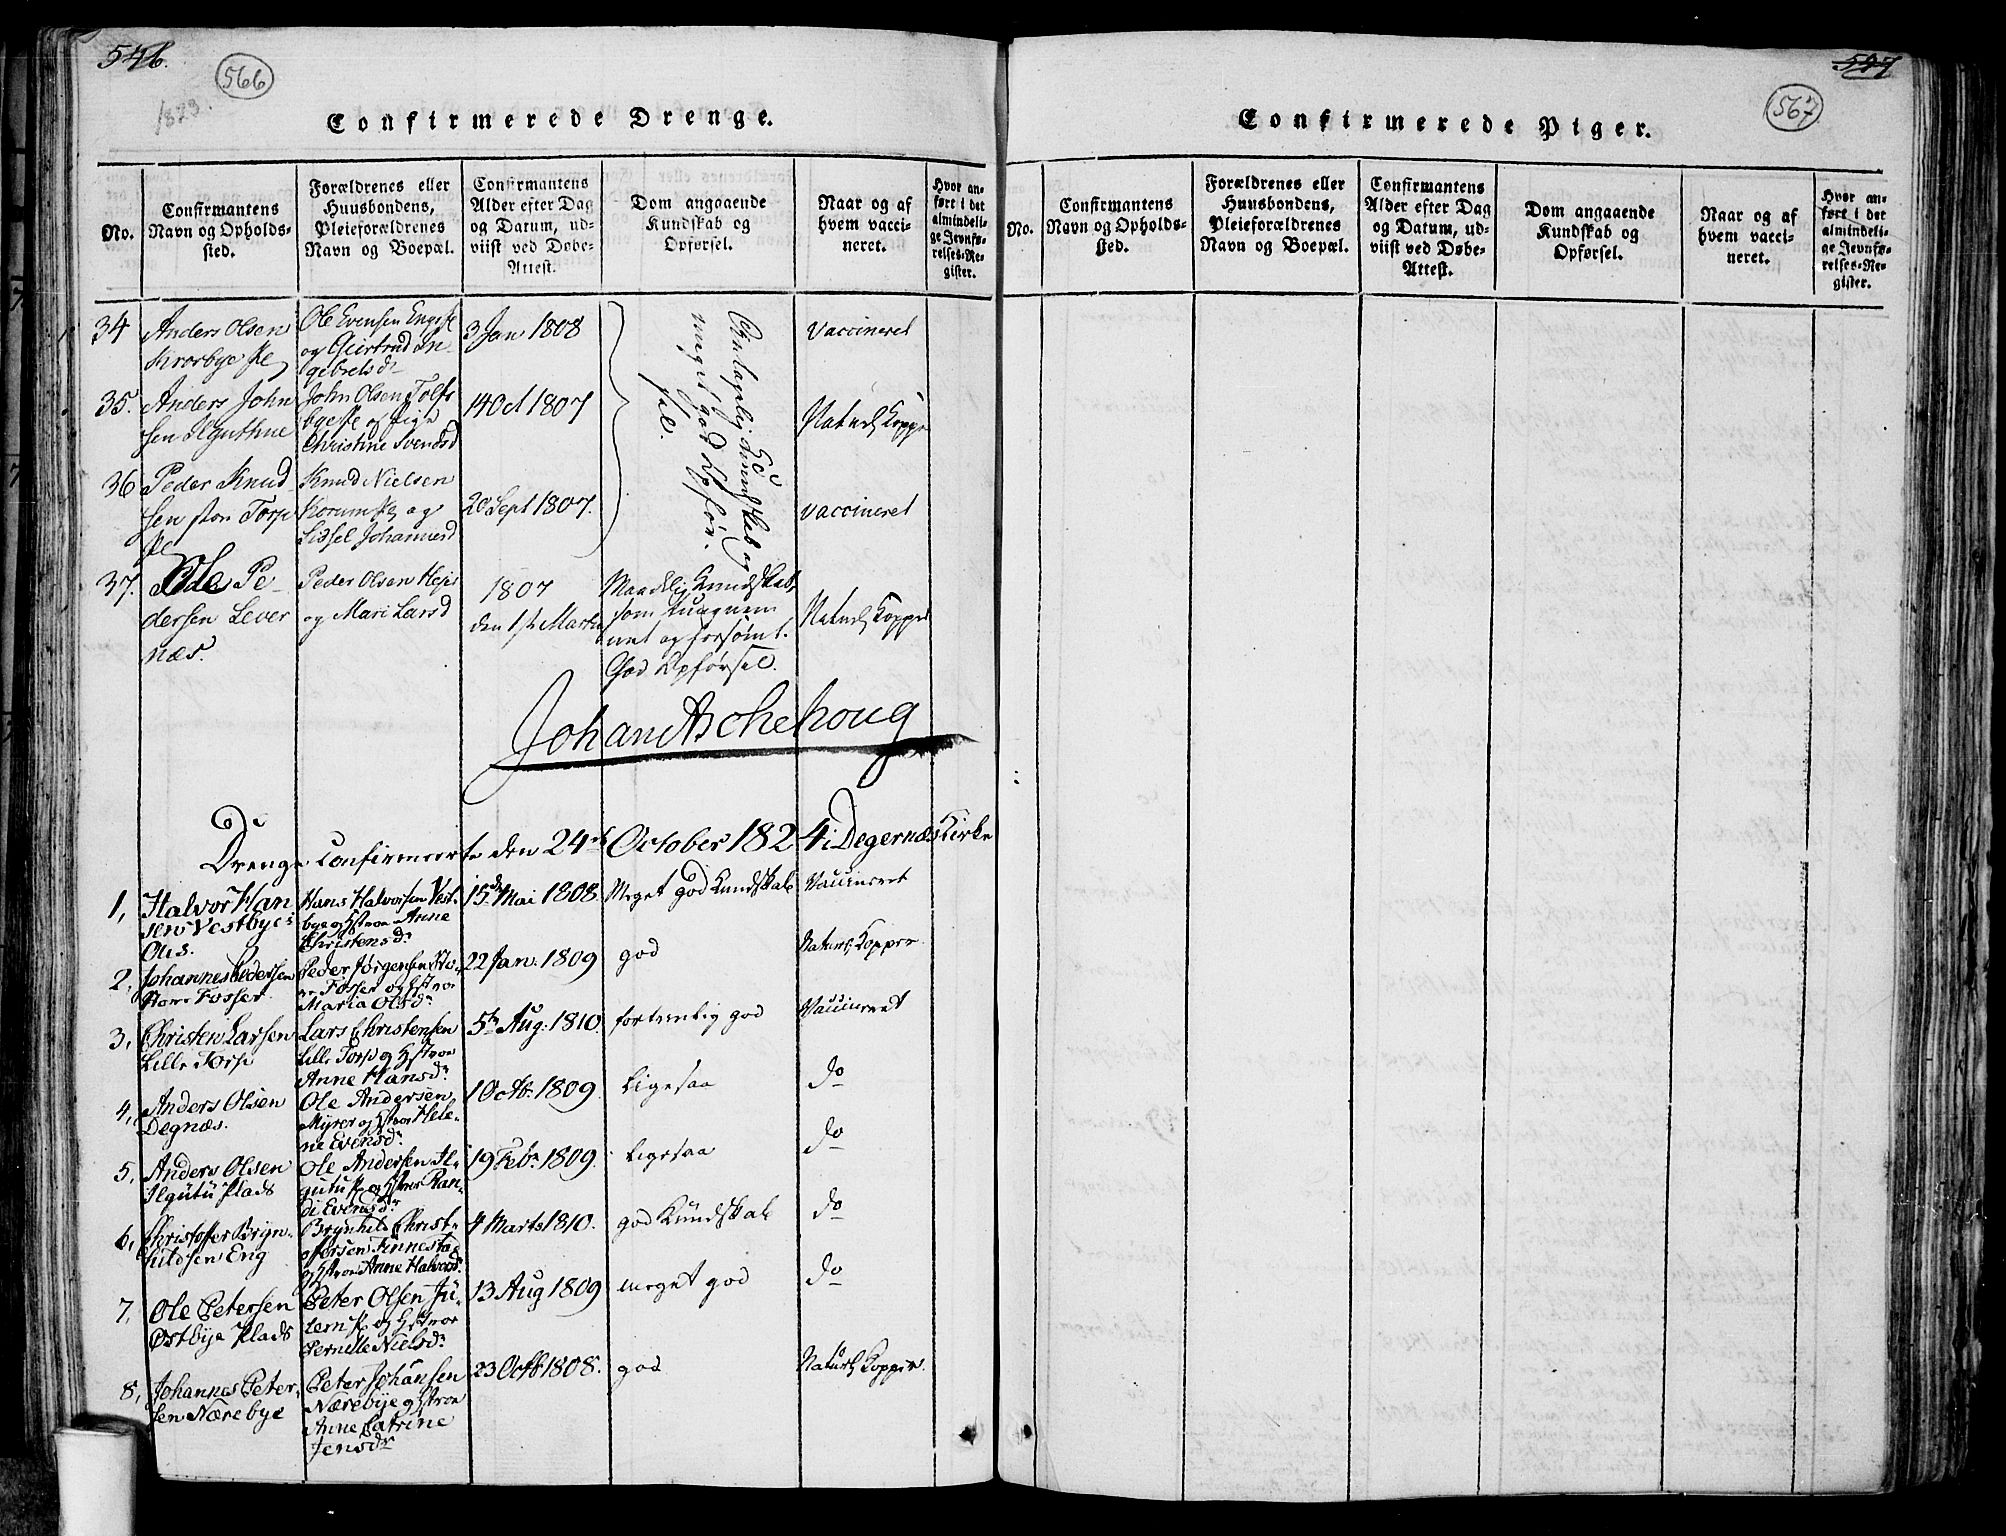 546.
566
1823.
Confirmerede Drenge.
No.
Confirmantens
Navn og Opholds-
sted.
Forældrenes eller
Huusbondens,
Pleieforældrenes
Navn og Boepæl.
Confirmantens
Alder efter Dag
og Datum, ud-
viist ved Døbe-
Attest.
Dom angaaende
Kundskab og
Opførsel.
Naar og af
hvem vacci-
neret.
Hvor an-
ført i det
almindeli-
ge Jevnfø-
relses-Re-
gister.
34
Anders Olsen
Ole Evensen
og Giertrud In-
gebretsd
3 Jan 1808
vaccineret
35.
Anders John
sen
John Olsen
og Pige
Christine Svendsd
14 Oct 1807
Naturl Kopper
36
Peder Knud
sen Torp
Knud Nielsen
og
Lissel Johannesd
20 Sept 1807.
vaccineret
Antagelig Kundskab og
meget god Opfør-
sel.
37.
Ole Pe-
dersen Lever
næs.
Peder Olsen
og Mari Larsd
1807
den 1ste Marts
Maadelig Kundskab,
som
met og forsømt.
God Opførsel.
Naturl Kopper
Johan Aschehoug
Drenge confirmeerte den 24de October 1824 i Degernæs Kirke
1,
Halvor Han
sen Vestbye
Hans Halvorsen Vest-
bye og Hstroe Anne
Christensdr
15de Mai 1808
Meget god Kundskab
Vaccineret
2,
Johannes Pedersen
Store Fosser
Peder Jørgensen Sto-
re Fosser og Hstroe
Maria Olsdr
22 Jan. 1809
god
Naturl. Kopper
3,
Christen Larsen
Lille Torp
Lars Christensen
Lille Torp og Hstroe
Anne Hansdr
5te Aug. 1810.
fortrinlig god
Vaccineret
4,
Anders Olsen
Degnæs.
Ole Andersen
Myrer og Hstroe Hele-
ne Evensdr
1 Octb. 1809.
Ligesaa
do
5,
Anders Olsen
Plads
Ole Andersen
og Hstroe Ran-
di Evensdr
19 Febr 1809.
Ligesaa
do
6,
Christoffer Bryn-
hildsen Eng
Brynhild Christ-
offersen Finnestad
og Hstroe Anne Halvorsdr
4 Marts 1810.
god Kundskab
do
7,
Ole Petersen
Østbye Plads
Peter Olsen Ju-
og Hstroe
Pernille Nielsdr
13 Aug 1809
meget god
do
8,
Johannes Peter-
sen Nærebye
Peter Johansen
Nærebye og Hstroe
Anne Catrine
Jensdr
23 Octb 1808.
god
Naturl Kopper.
547
567
Confirmerede Piger.
No.
Confirmantens
Navn og Opholds-
sted.
Forældrenes eller
Huusbondens,
Pleieforældrenes
Navn og Boepæl.
Confirmantens
Alder efter Dag
og Datum, ud-
viist ved Døbe-
Attest.
Dom angaaende
Kundskab og
Opførsel.
Naar og af
hvem vacci-
neret.
Hvor an-
ført i det
almindeli-
ge Jevnfø-
relses-Re-
gister.